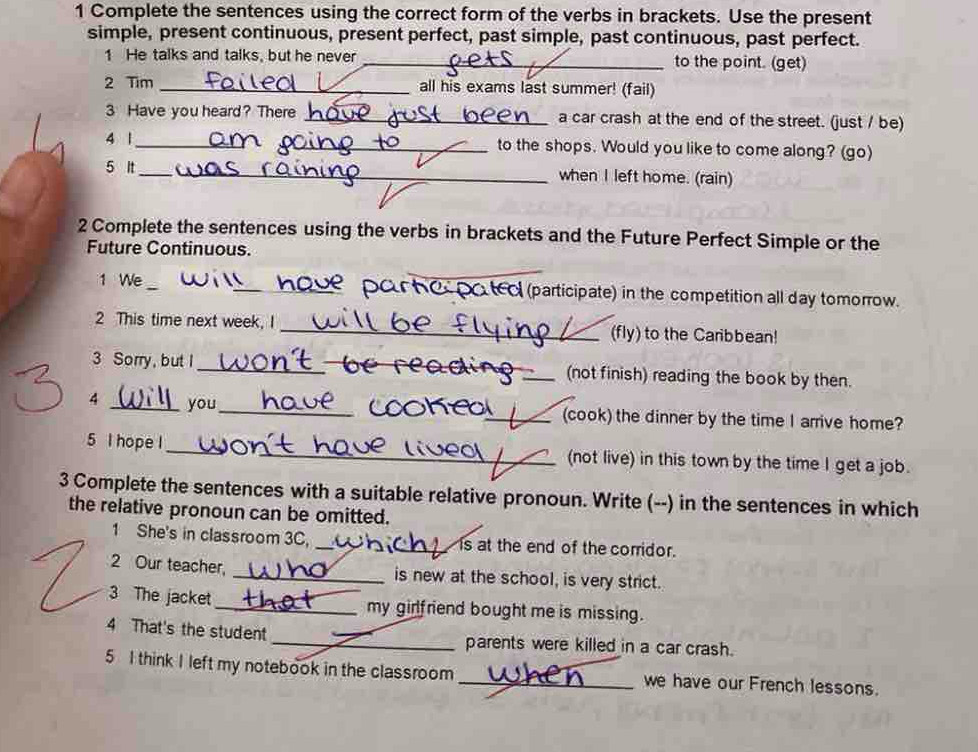 1 Complete the sentences using the correct form of the verbs in brackets. Use the present
simple, present continuous, present perfect, past simple, past continuous, past perfect.
1 He talks and talks, but he never gets to the point. (get)
2 Tim failed all his exams last summer! (fail)
3 Have you heard? There have just been a car crash at the end of the street. (just / be)
4 I am going to to the shops. Would you like to come along? (go)
5 It was raining when I left home. (rain)
2 Complete the sentences using the verbs in brackets and the Future Perfect Simple or the
Future Continuous.
1 We will have participated (participate) in the competition all day tomorrow.
2 This time next week, I will be flying (fly) to the Caribbean!
3 Sorry, but I won't be reading (not finish) reading the book by then.
3
4 Will you have cooked (cook) the dinner by the time I arrive home?
5 I hope I won't have lived (not live) in this town by the time I get a job.
3 Complete the sentences with a suitable relative pronoun. Write (--) in the sentences in which
the relative pronoun can be omitted.
1 She's in classroom 3C, which is at the end of the corridor.
2 Our teacher, who is new at the school, is very strict.
2
3 The jacket that my girlfriend bought me is missing.
4 That's the student — parents were killed in a car crash.
5 I think I left my notebook in the classroom when we have our French lessons.